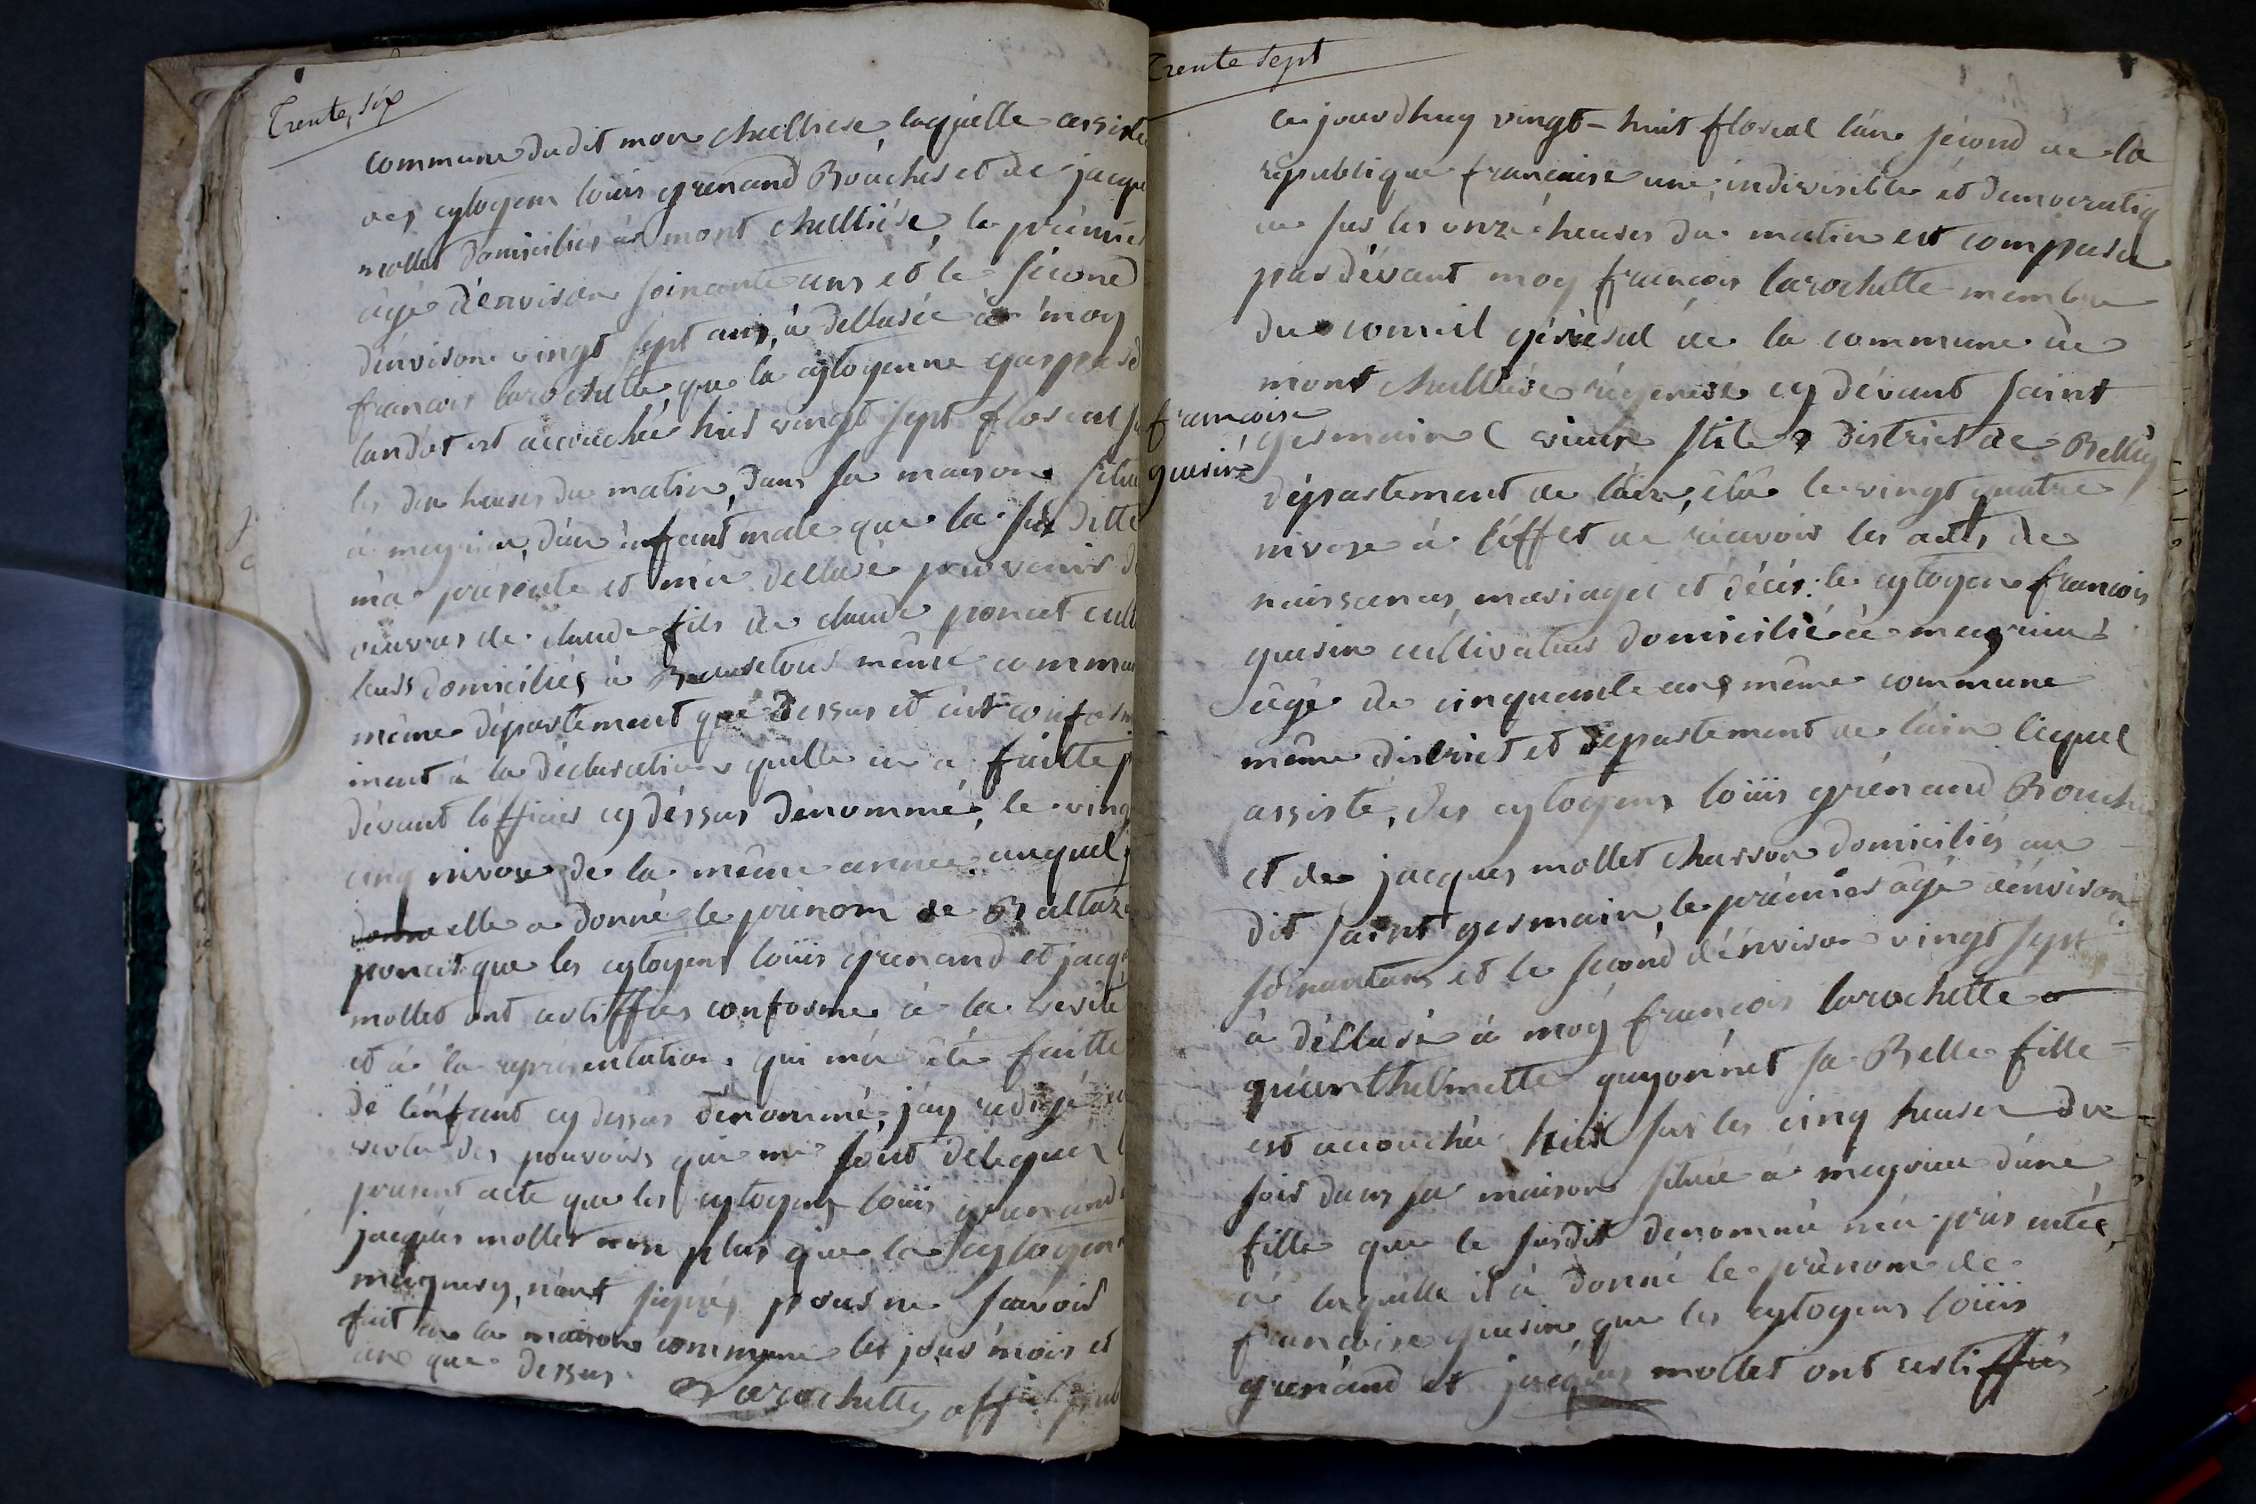 Trente, six
commune dudit mon chelliese laquelle assiste
des cytoyens loüis grenand Boucher et de jacque
mollet domiciliés à mont chelliése, le prémier
âgé dénviron soixante ans et le sécond
dénviron vingt sept ans, à dellasée à moy
francois larochette, que la cytoyenne gasparde
landot est accouchée hier vingt sept floreal su
les dix heures du matin, dans sa maison situé
à meyrieu, dún énfant male que la sus ditte
m'a présenté et m'a dellasé provenir d
oeuvres de claude fils de claude poncet cult
teurs domiciliés à même commu
même département que dessus et ce conform
ment à la déclaration quelle en a faitte p
dévant lófficier cy déssus dénommé, le ving
cinq nivose de la même année auquel
donne elle a donné le prénom de Baltaza
poncet que les cytoyens loüis grenand et jacqu
mollet ont certiffiés conforme à la verité
et à la représentation qui m'a été faitte
de lénfant cy dessus dénommé, jay redigé en
vertu des pouvoirs qui me sont délégués l
present acte que les cytoyens loüis grenand
jacques mollet non plus que la cytoyenn
n'ont signés pour ne savoir
fait en la maison commune les jour mois et
an que dessus.
Larochette officier pub
Trente sept
francoise
guesin
ce jourdhuy vingt-huit floreal lán sécond de la
république francaise une, indivisible et démocratiq
ue sur les onze heures du matin est comparu
par dévant moy francois larochette membre
du conseil général de la commune de
mont chelliése régénéré cy dévant saint
germain (vieux stile) district de Belley
département de láin, élû le vingt quatre
nivose à léffet de récevoir les actes de
naissances, mariages et décés: le cytoyen francois
guesin cultivateur domicilié à meyrieu
âgé de cinquante ans même commune
même district et département de láin lequel
assisté, des cytoyens loüis grénand Boucher
et de jacques mollet charron domiciliés au
dit saint germain, le prémier âgé dénviron
soixantans et le sécond dénviron vingt sept
à déllasé à moy francois larochette
quánthelmette guyonnet sa Belle fille
est accouchée hier sur les cinq heures du
soir dans sa maison située à meyrieu dúne
fille que le susdit denommé m'a présentée,
à laquelle il à donné le prénom de
francoise guesin, que les cytoyens loüis
grénand et jacques mollet ont certiffiés